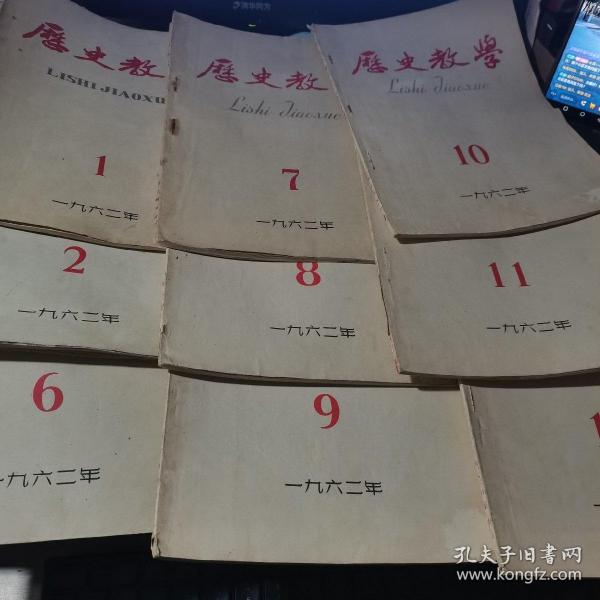 清华同方
歷史教
LISHI JIAOXU
1
一九六二年
歷史教
Lishi Jiaoxue
7
一九六二年
歷史教学
Lishi Jiaoxue
10
一九六二年
2
一九六二年
8
一九六二年
11
一九六二年
6
一九六二年
9
一九六二年
1
孔夫子旧书网
www.kongfz.com